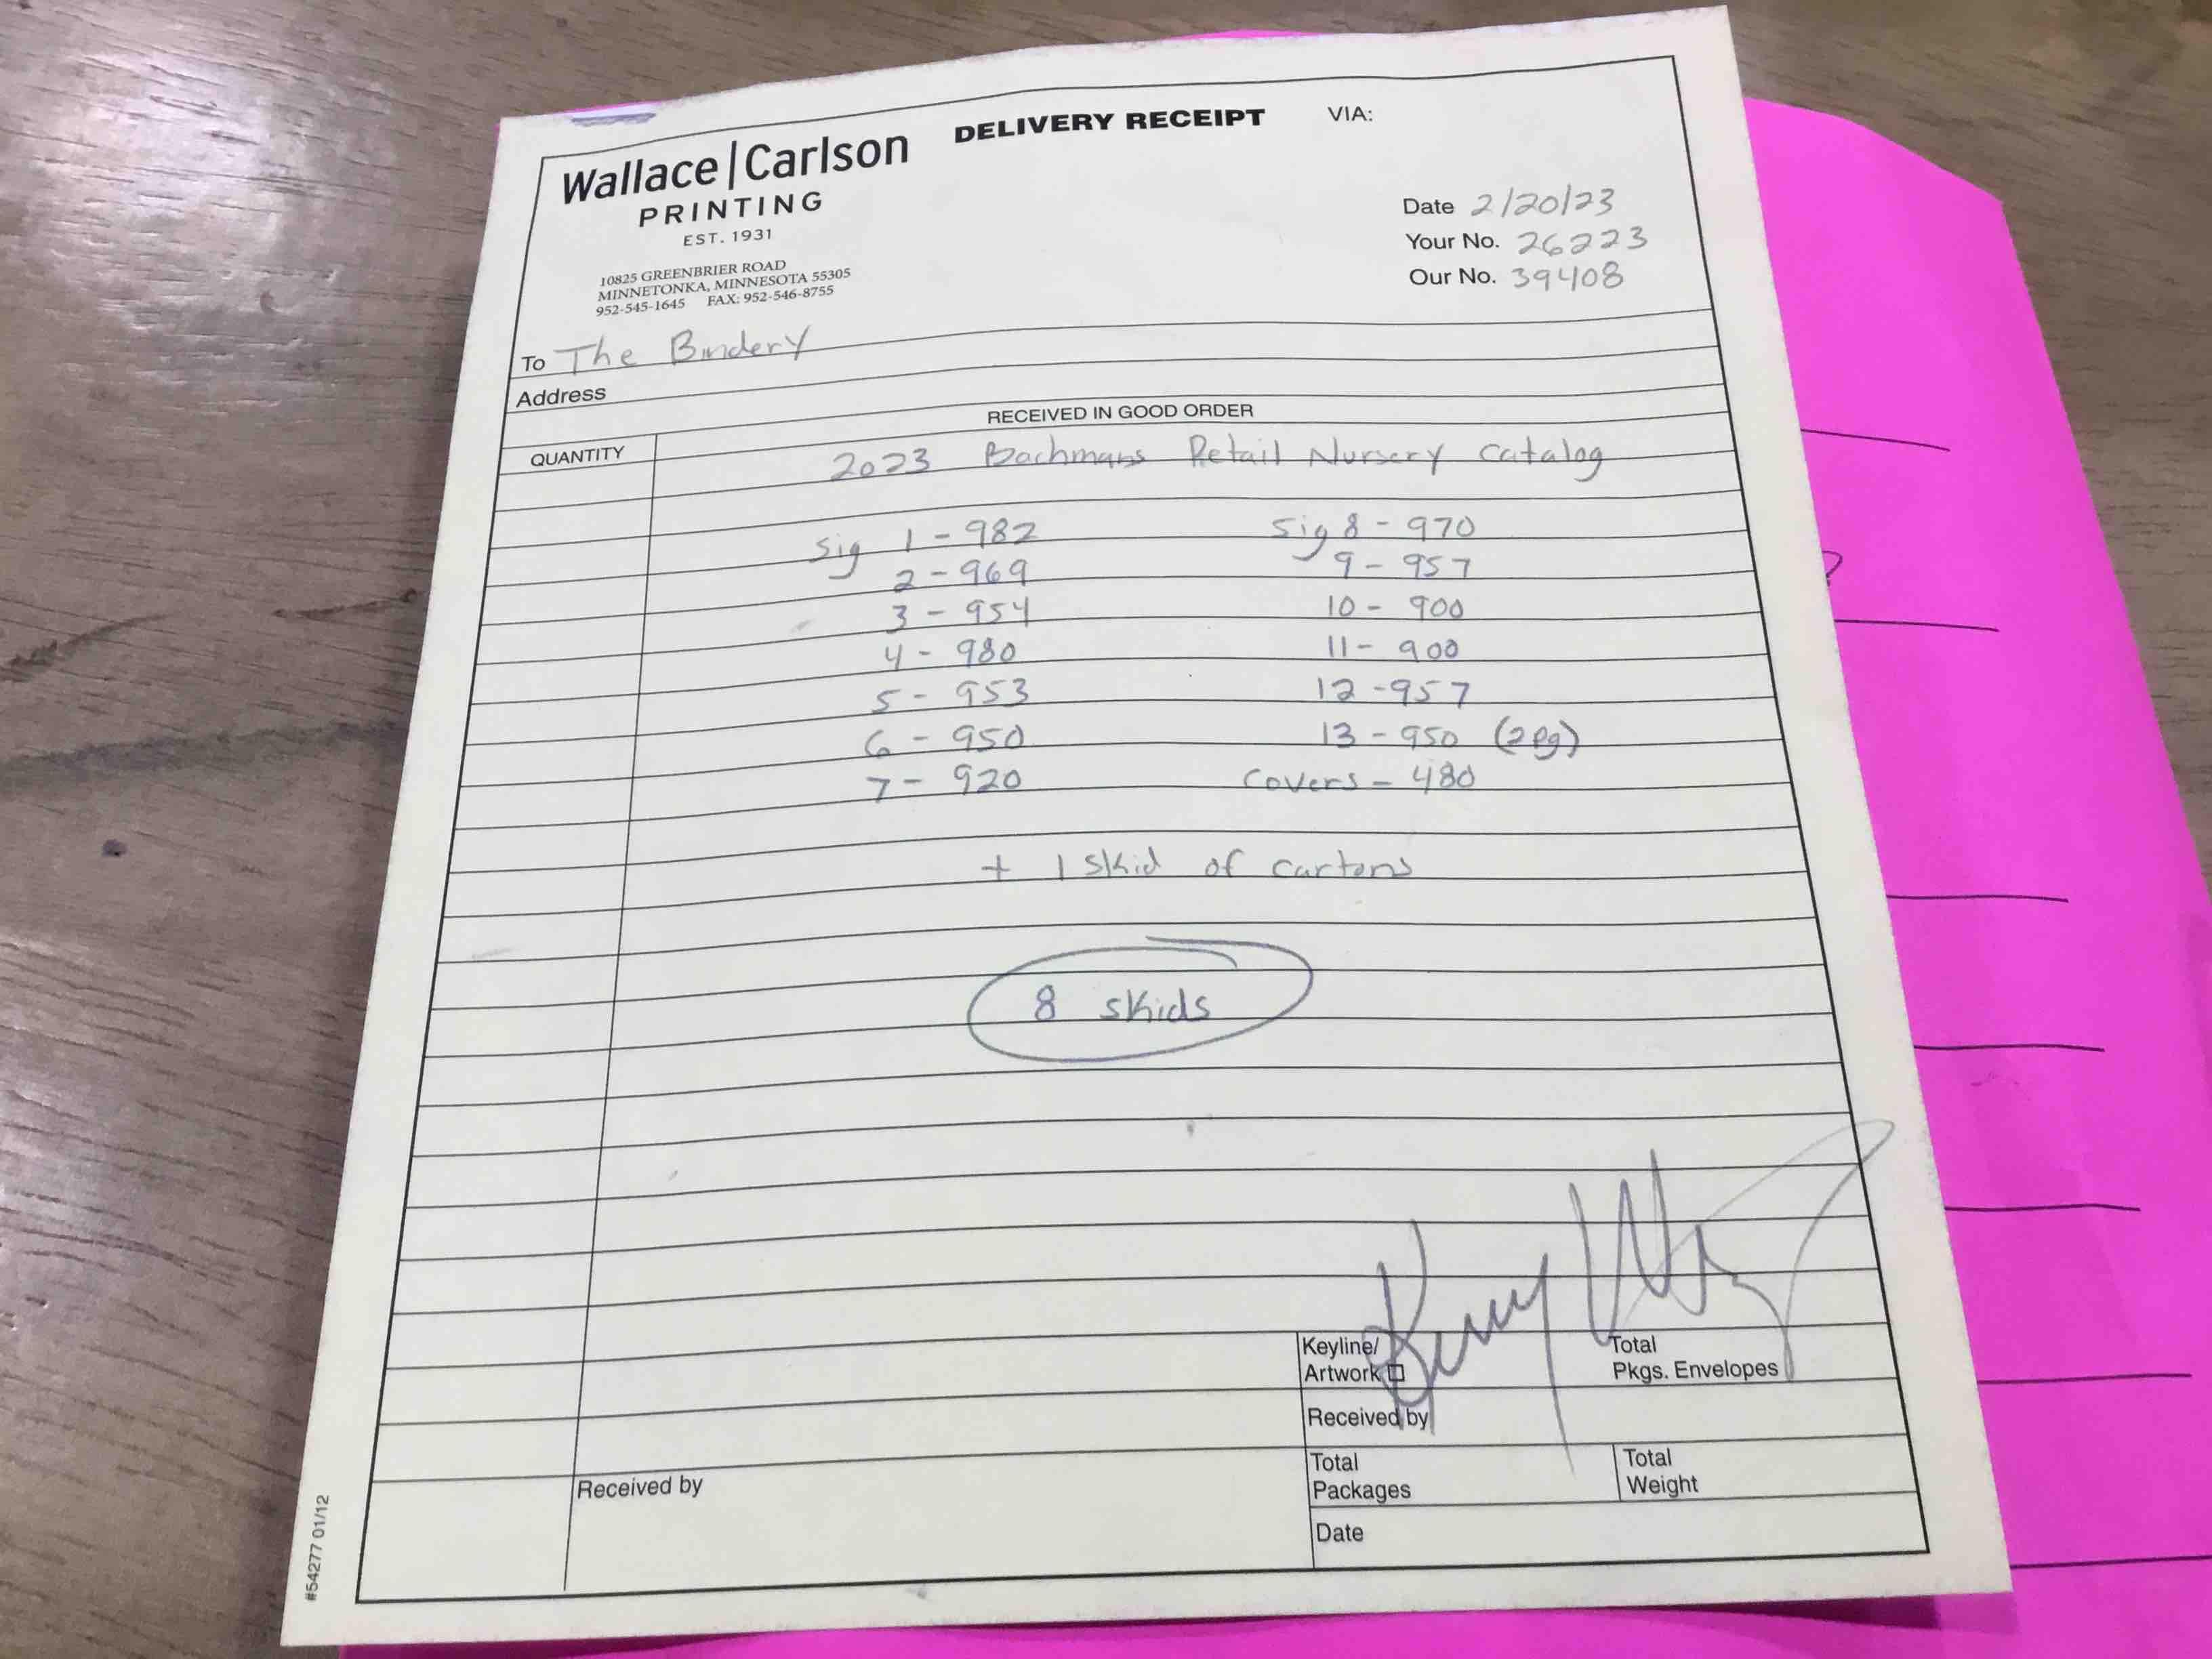 DELIVERY RECEIPT
VIA:
Wallace|Carlson
PRINTING
EST. 1931
10825 GREENBRIER ROAD
MINNETONKA, MINNESOTA 55305
952-545-1645 FAX: 952-546-8755
Date 2/20/23
Your No. 26223
Our No. 39408
To The Bindery
Address
RECEIVED IN GOOD ORDER
QUANTITY
2023 Bachmans Retail Nursery Catalog
Sig 1 - 982
2 - 969
3 - 954
4 - 980
5 - 953
6 - 950
7 - 920
Sig 8 - 970
9 - 957
10 - 900
11 - 900
12 - 957
13 - 950 (2 pg)
Covers - 480
+ 1 skid of cartons
8 skids
Keyline/
Artwork
Total
Pkgs. Envelopes
Received by
Total
Packages
Total
Weight
Date
Received by
#54277 01/12